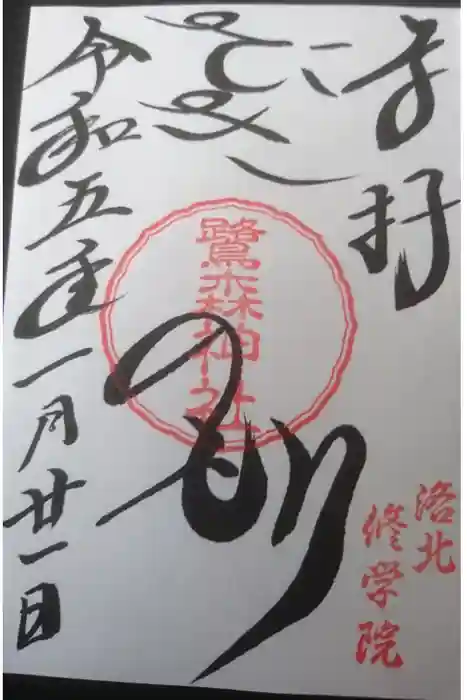 奉拝
洛北
修学院
さぎのもり
鷺森神社
令和五年一月廿一日